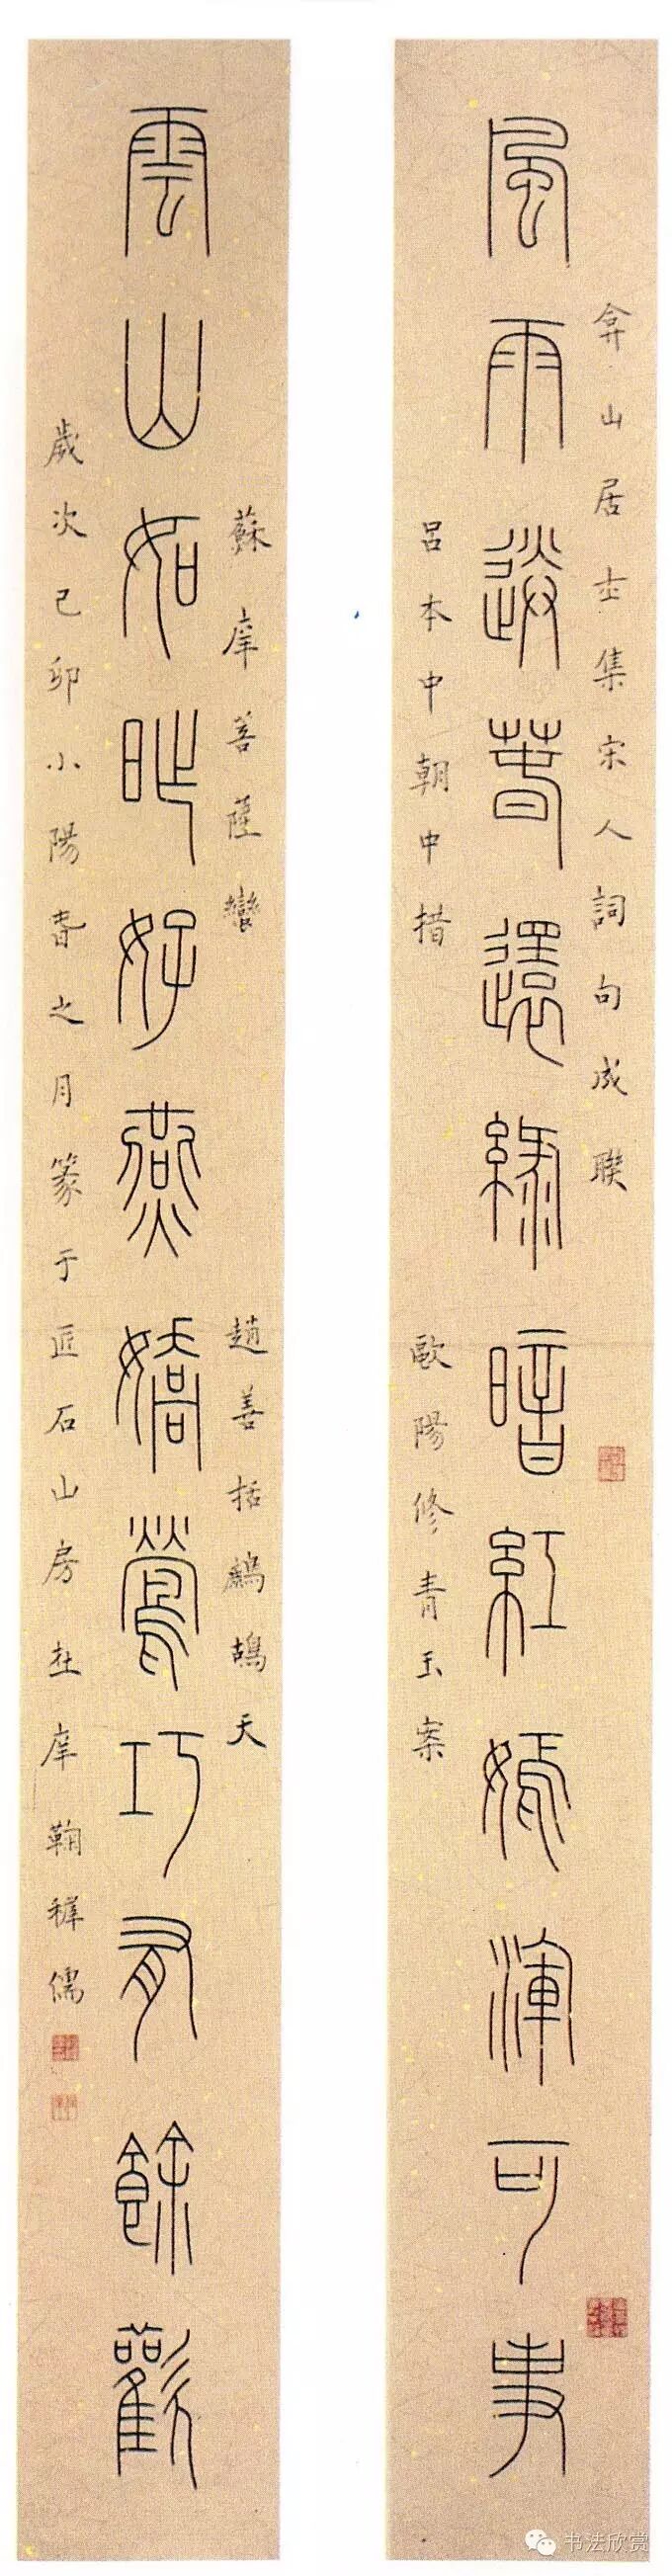 弇山居士集宋人詞句成聯
風雨送春還綠暗紅嫣渾可事
呂本中朝中措
歐陽修青玉案
蘇庠菩薩蠻
趙善括鷓鴣天
雲山如昨好燕嬌鶯巧有餘歡
歲次己卯小陽春之月篆于匠石山房 庠鞠穉儒
书法欣赏